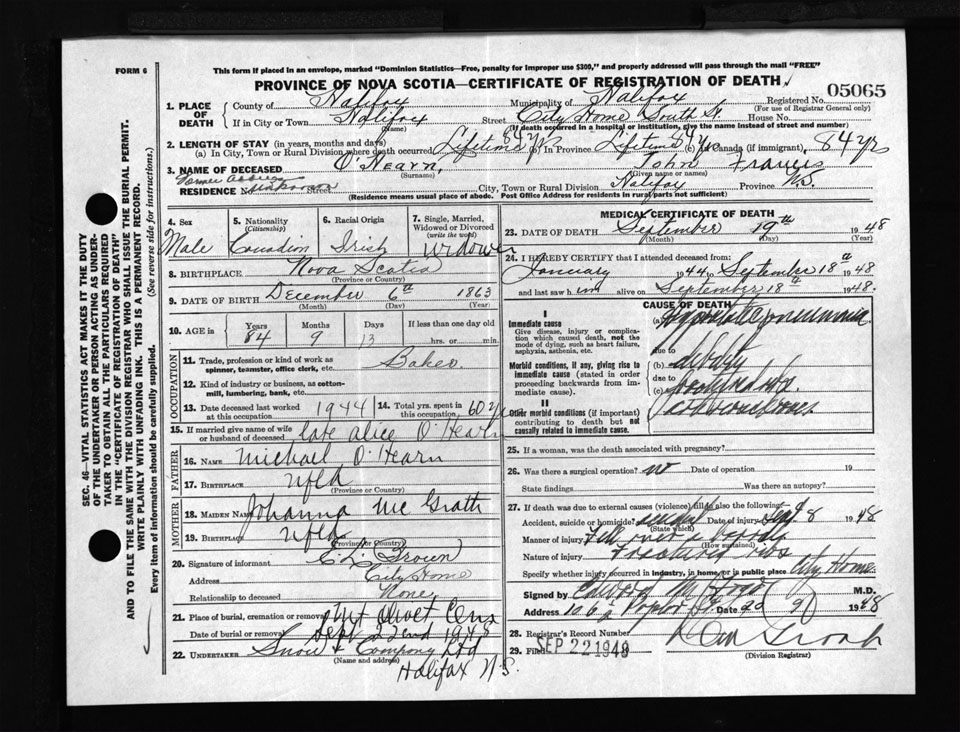 FORM 6
This form if placed in an envelope, marked "Dominion Statistics—Free, penalty for improper use $300," and properly addressed will pass through the mail "FREE"
PROVINCE OF NOVA SCOTIA—CERTIFICATE OF REGISTRATION OF DEATH
05065
1. PLACE OF DEATH
County of Halifax Municipality of Halifax Registered No.
(For use of Registrar General only)
If in City or Town Halifax Street City Home South St. House No.
(Name)
(If death occurred in a hospital or institution, give the name instead of street and number)
2. LENGTH OF STAY (in years, months and days)
(a) In City, Town or Rural Division where death occurred Lifetime 84 yr (b) in Province Lifetime 84 yr (c) in Canada (if immigrant) 84 yrs
3. NAME OF DECEASED O'Hearn, John Francis
(Surname) (Given name or names)
RESIDENCE No. Unknown Street City, Town or Rural Division Halifax Province N.S.
(Residence means usual place of abode. Post Office Address for residents in rural parts not sufficient)
4. Sex Male
5. Nationality (Citizenship) Canadian
6. Racial Origin Irish
7. Single, Married, Widowed or Divorced (write the word) Widower
8. BIRTHPLACE Nova Scotia
(Province or Country)
9. DATE OF BIRTH December 6th 1863
(Month) (Day) (Year)
10. AGE in Years Months Days If less than one day old
84 9 13 hrs. or min.
OCCUPATION
11. Trade, profession or kind of work as spinner, teamster, office clerk, etc. Baker
12. Kind of industry or business, as cotton-mill, lumbering, bank, etc.
13. Date deceased last worked at this occupation 1944
14. Total yrs. spent in this occupation 60 yr
15. If married give name of wife or husband of deceased late Alice O'Hearn
FATHER
16. NAME Michael O'Hearn
17. BIRTHPLACE Nfld
(Province or Country)
MOTHER
18. MAIDEN NAME Johanna McGrath
19. BIRTHPLACE Nfld
(Province or Country)
20. Signature of informant
Address City Home
Relationship to deceased None
21. Place of burial, cremation or removal Mt Olivet Cem
Date of burial or removal Sept 22nd 1948
22. UNDERTAKER Snow & Company Ltd
(Name and address)
Halifax N.S.
MEDICAL CERTIFICATE OF DEATH
23. DATE OF DEATH September 19th 1948
(Month) (Day) (Year)
24. I HEREBY CERTIFY that I attended deceased from:
January 1944 to September 18th 1948
and last saw him alive on September 18th 1948.
CAUSE OF DEATH
I
Immediate cause
Give disease, injury or complication which caused death, not the mode of dying, such as heart failure, asphyxia, asthenia, etc.
(a) Hypostatic pneumonia
due to
Morbid conditions, if any, giving rise to immediate cause (stated in order proceeding backwards from immediate cause).
(b) debility
due to
(c)
II
Other morbid conditions (if important) contributing to death but not causally related to immediate cause.
25. If a woman, was the death associated with pregnancy?
26. Was there a surgical operation? no Date of operation 19
State findings Was there an autopsy?
27. If death was due to external causes (violence) fill in also the following:—
Accident, suicide or homicide? Date of injury Sept 8 1948
(State which)
Manner of injury Fell over
(How sustained)
Nature of injury Fractured ribs
Specify whether injury occurred in industry, in home, or in public place City Home
Signed by M.D.
Address Date 20 (9) 1948
28. Registrar's Record Number
29. Filed SEP 22 1948
(Division Registrar)
SEC. 46—VITAL STATISTICS ACT MAKES IT THE DUTY OF THE UNDERTAKER OR PERSON ACTING AS UNDERTAKER TO OBTAIN ALL THE PARTICULARS REQUIRED IN THE "CERTIFICATE OF REGISTRATION OF DEATH" AND TO FILE THE SAME WITH THE DIVISION REGISTRAR WHO SHALL ISSUE THE BURIAL PERMIT.
WRITE PLAINLY WITH UNFADING INK. THIS IS A PERMANENT RECORD.
Every item of Information should be carefully supplied. (See reverse side for instructions.)